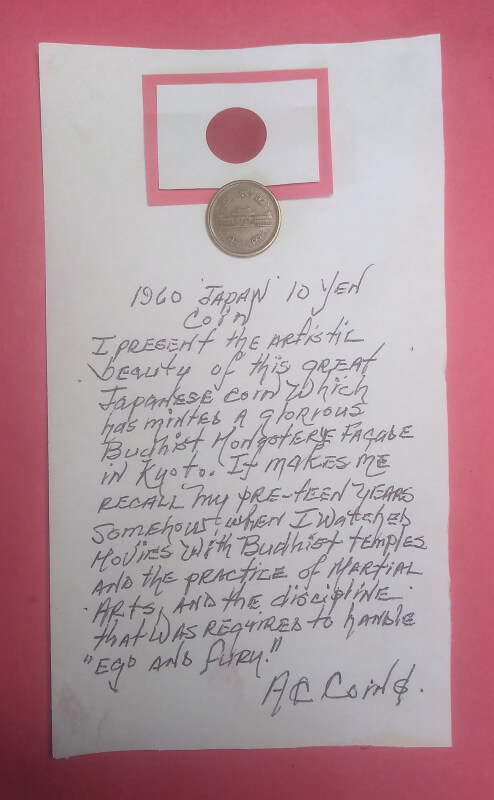 1960 "JAPAN" 10 YEN
COIN
I PRESENT the ARtistic
beauty of this GREAT
JAPANESE COIN Which
has minted A glorious
Budhist Mongotery Façade
in Kyoto. It MAKES ME
RECALL my PRE-teen YEARS
Somehow when I Watched
Movies With Budhist temples
AND the PRActice of MARtial
ARts, AND the discipline
that WAS REquired to handle
"EgO AND FURY."
A¢ Coin$.